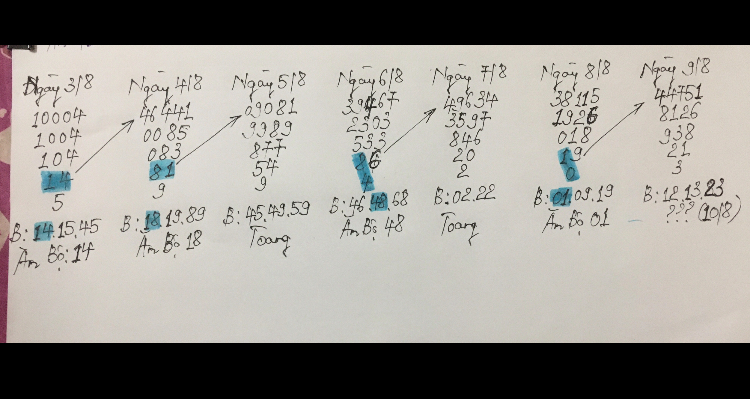 Ngày 3/8
10004
1004
104
14
5
B: 14.15.45
Ăn Bộ: 14
Ngày 4/8
46441
0085
083
81
9
B: 18.19.89
Ăn Bộ 18
Ngày 5/8
09081
9989
877
54
9
B: 45.49.59
Toang
Ngày 6/8
39467
2303
533
86
4
B: 46.48.68
Ăn Bộ 48
Ngày 7/8
49634
3597
846
20
2
B: 02.22
Toang
Ngày 8/8
38115
1926
018
19
0
B: 01.09.19
Ăn Bộ 01
Ngày 9/8
44751
8126
938
21
3
B: 12.13.23
??? (10/8)